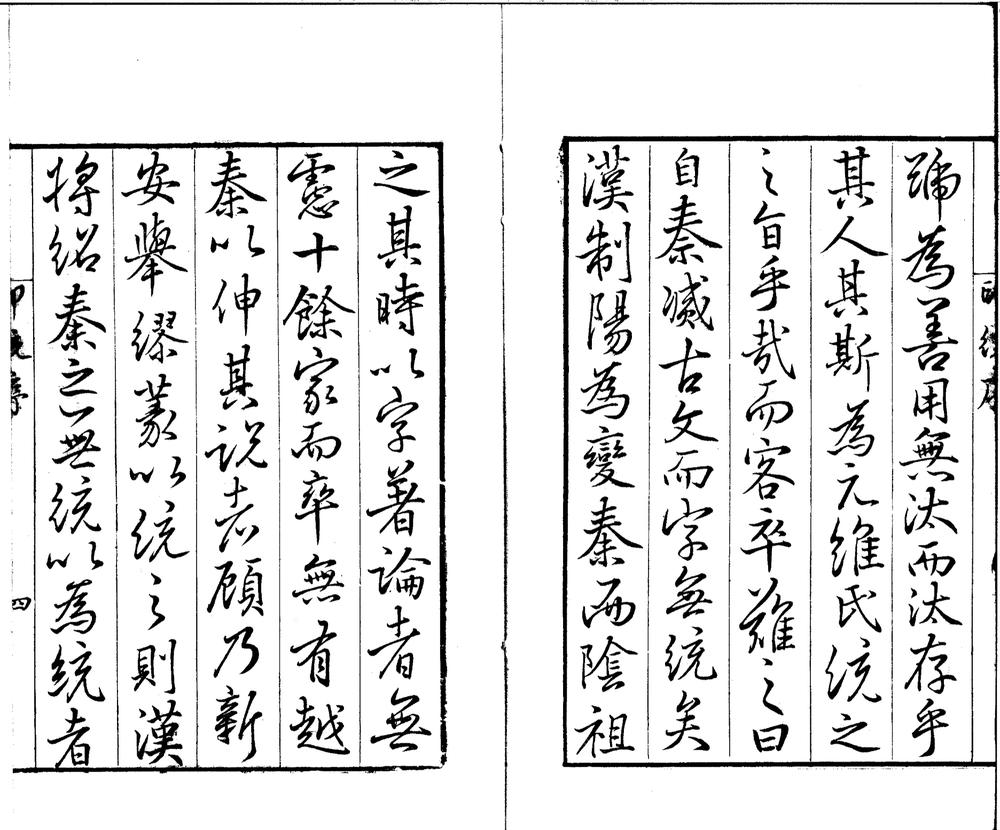 號為善用無法而法存乎
其人其斯為元維氏統之
之旨乎哉而客卒難之曰
自秦滅古文而字無統矣
漢制陽為變秦而陰祖
之其時以字著論者無
慮十餘家而卒無有越
秦以伸其說者顧乃新
安舉繆篆以統之則漢
將紹秦之無統以為統者
四